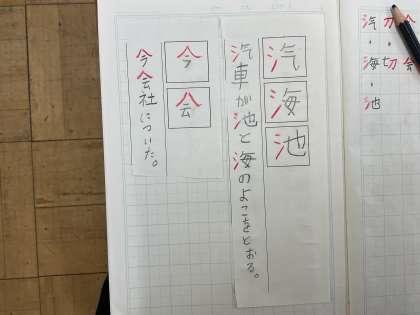 汽
海
池
汽車が池と海のよこをとおる。
今
会
今会社についた。
会
会
切
切
汽
海
池